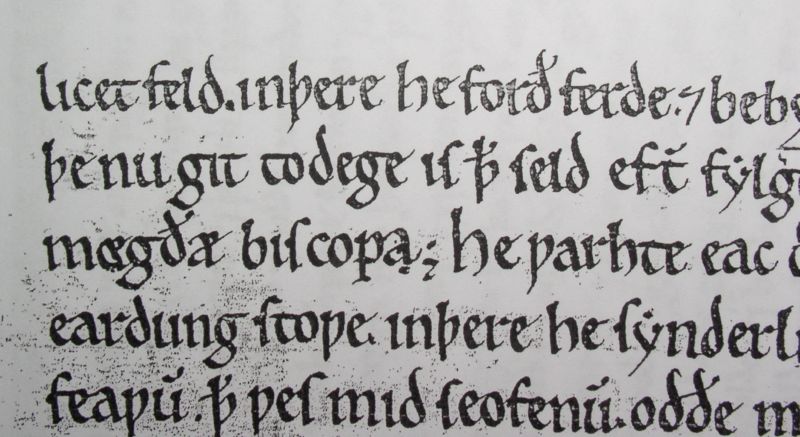 licetfeld. inþere he forđ ferde. ⁊ beb
þe nu git todege is ꝥ seld eft̄ fẏlg
mægđæ biscopa; he ƿarhte eac
eardung stoƿe. inþere he sẏnderl
feaƿū. ꝥ ƿes mid seofenū. ođđe m